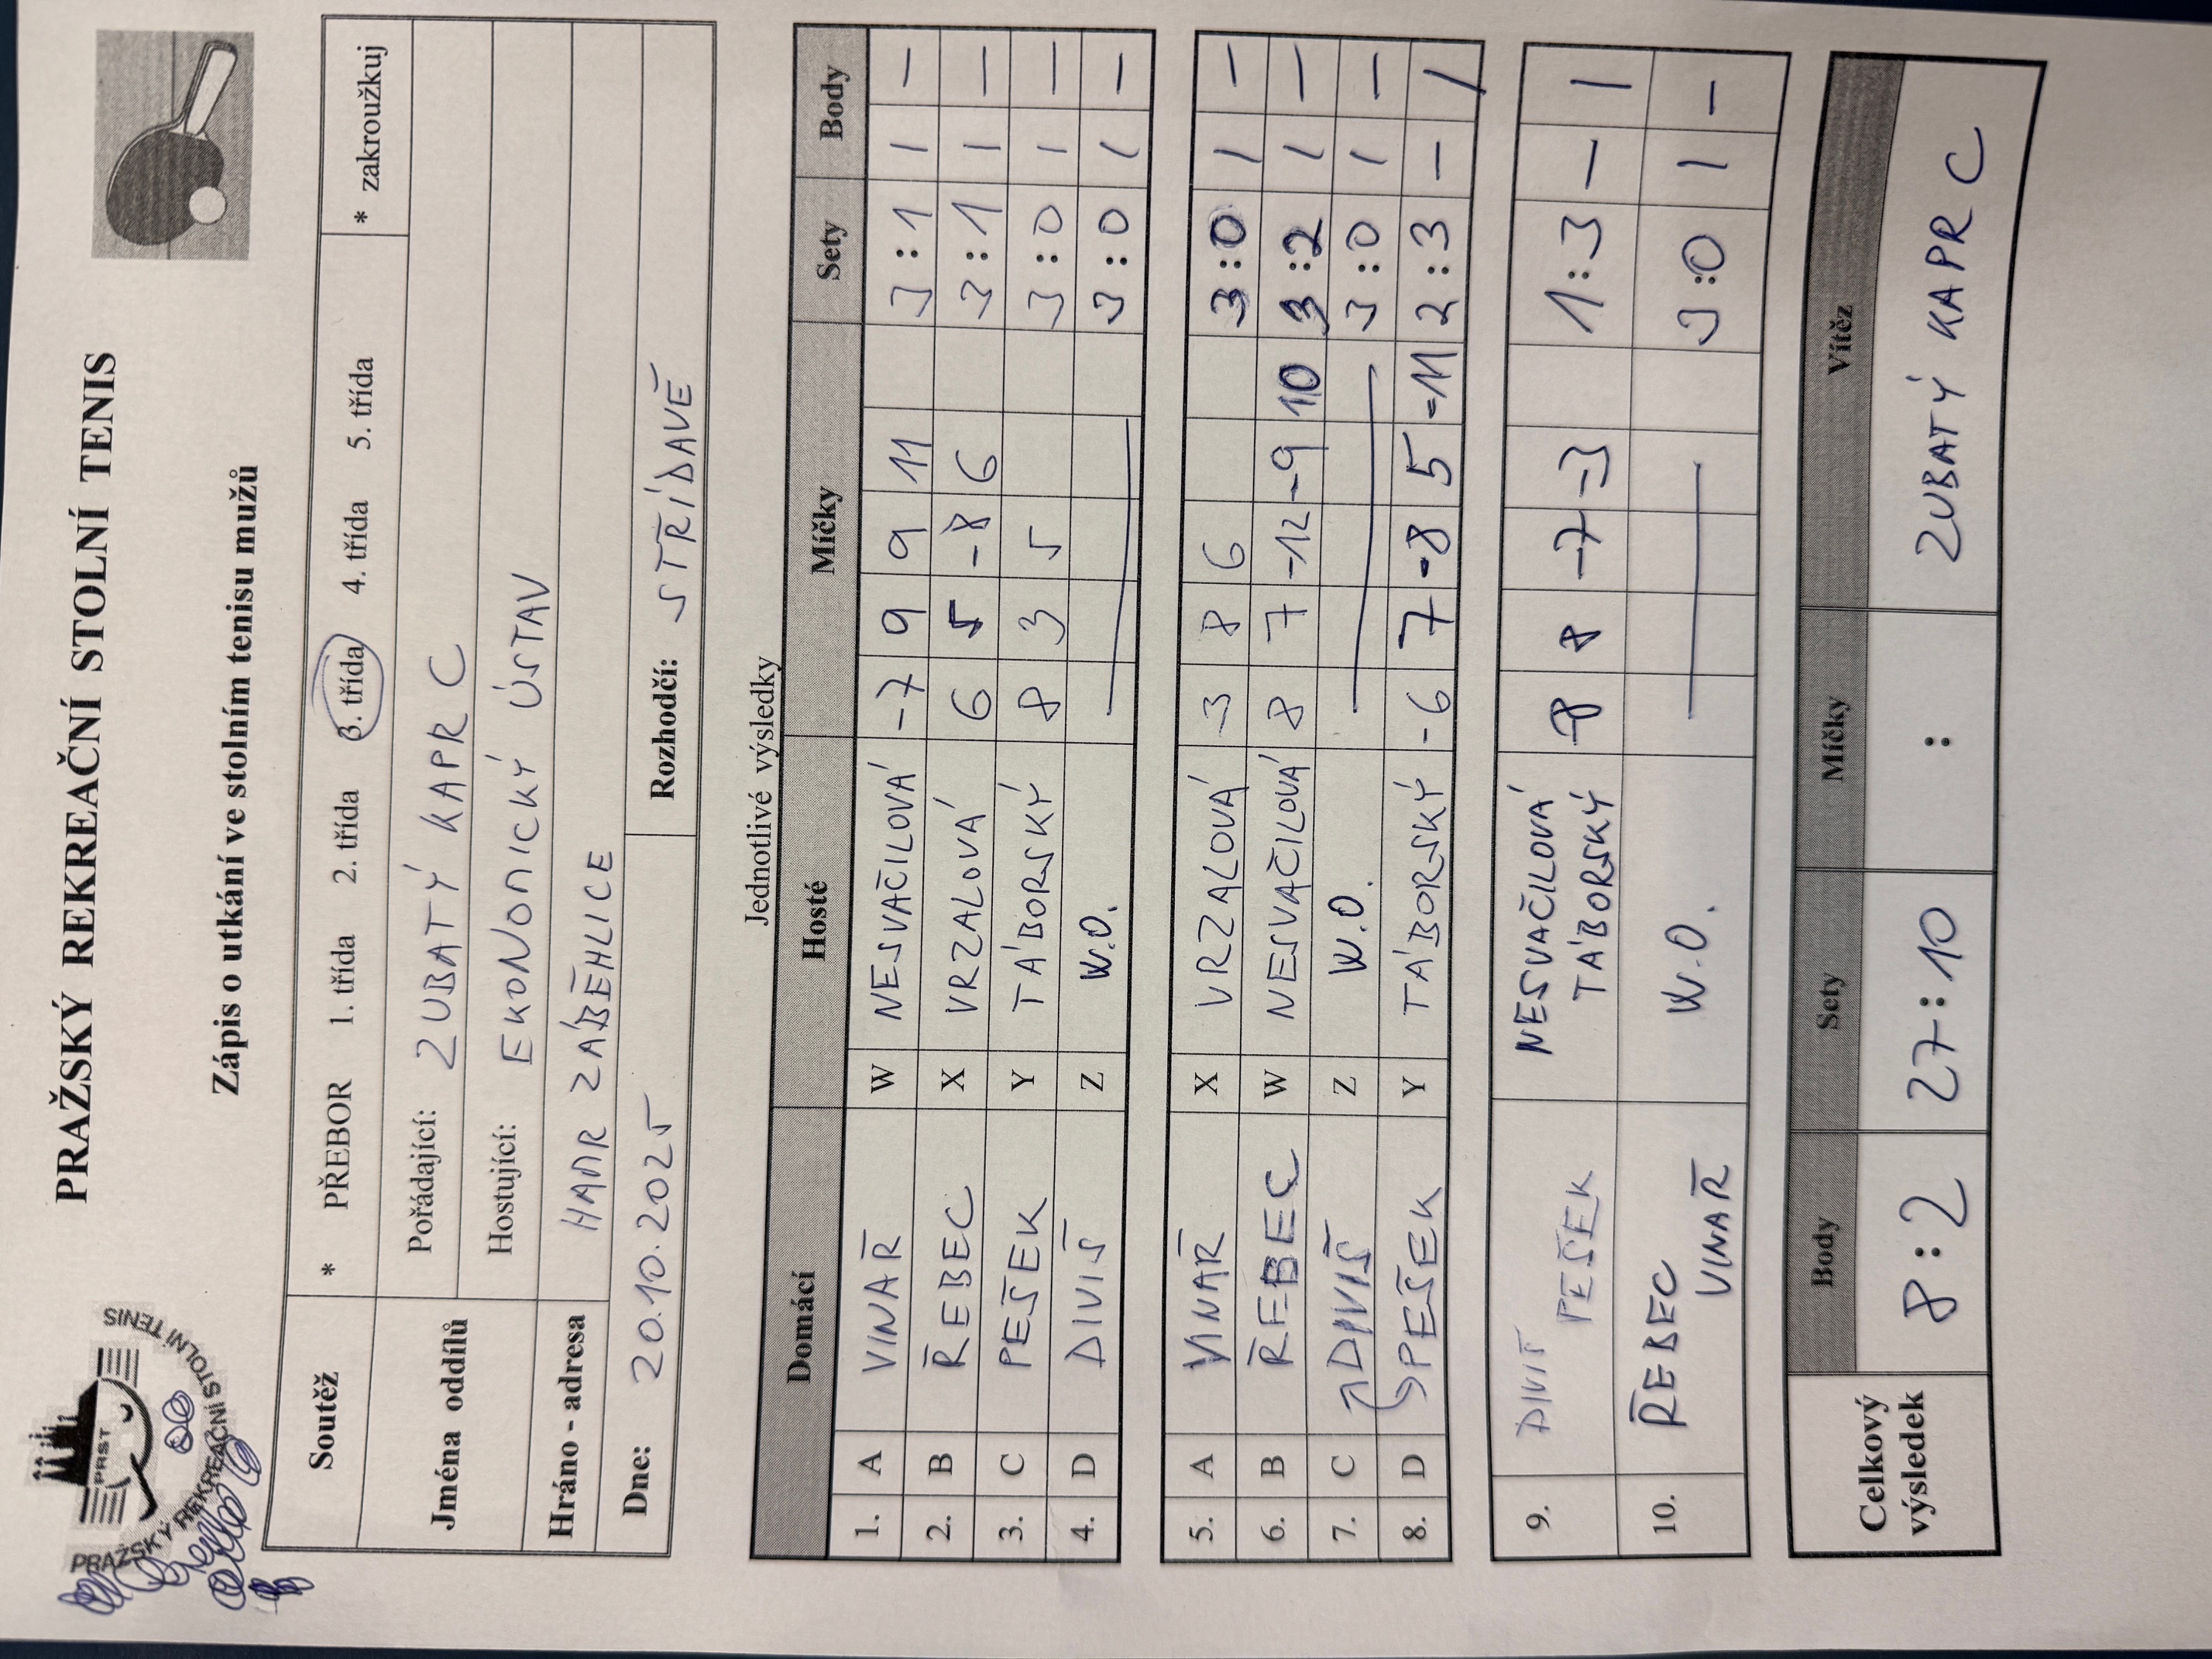 PRAŽSKÝ REKREAČNÍ STOLNÍ TENIS
PRST
PRAŽSKÝ REKREAČNÍ STOLNÍ TENIS
Zápis o utkání ve stolním tenisu mužů
Soutěž * PŘEBOR 1. třída 2. třída 3. třída 4. třída 5. třída * zakroužkuj
Jména oddílů Pořádající: ZUBATÝ KAPR C
Hostující: EKONOMICKÝ ÚSTAV
Hráno - adresa HAMR ZÁBĚHLICE
Dne: 20.10.2025 Rozhodčí: STŘÍDAVĚ
Jednotlivé výsledky
Domácí Hosté Míčky Sety Body
1. A VINAŘ W NESVAČILOVÁ -7 9 9 11 3:1 1 –
2. B ŘEBEC X VRZALOVÁ 6 5 -8 6 3:1 1 –
3. C PEŠEK Y TÁBORSKÝ 8 3 5 3:0 1 –
4. D DIVIŠ Z W.O. 3:0 1 –
5. A VINAŘ X VRZALOVÁ 3 8 6 3:0 1 –
6. B ŘEBEC W NESVAČILOVÁ 8 7 -12 -9 10 3:2 1 –
7. C DIVIŠ Z W.O. 3:0 1 –
8. D PEŠEK Y TÁBORSKÝ -6 7 -8 5 -11 2:3 – 1
9. DIVIŠ PEŠEK NESVAČILOVÁ TÁBORSKÝ -8 8 -7 -3 1:3 – 1
10. ŘEBEC VINAŘ W.O. 3:0 1 –
Celkový výsledek Body Sety Míčky Vítěz
8:2 27:10 : ZUBATÝ KAPR C